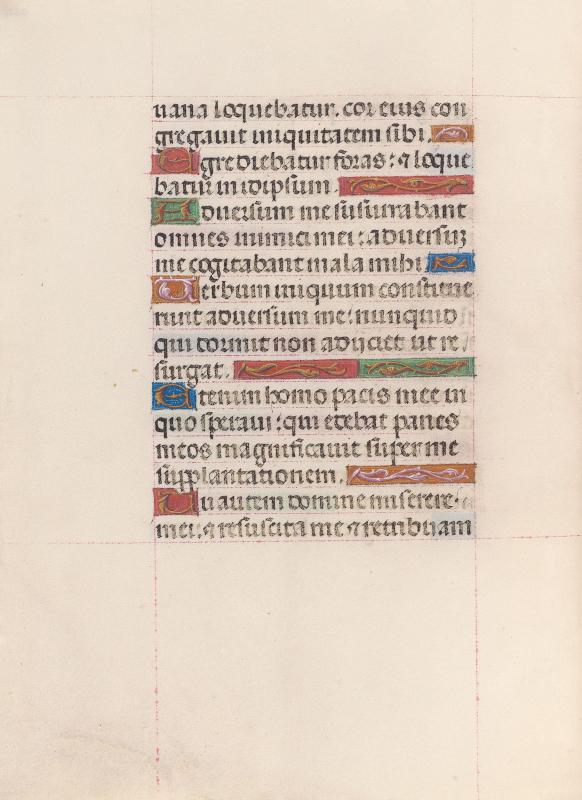 uana loquebatur. cor eius con
gregauit iniquitatem sibi.
Egrediebatur foras: ⁊ loque
batur in idipsum.
Aduersum me susurrabant
omnes inimici mei: aduersuʒ
me cogitabant mala mihi.
Uerbum iniquum constitue
runt aduersum me: nunquid
qui dormit non adijciet ut re/
surgat.
Etenim homo pacis mee in
quo speraui: qui edebat panes
meos magnificauit super me
supplantationem.
Tu autem domine miserere
mei: ⁊ resuscita me ⁊ retribuam